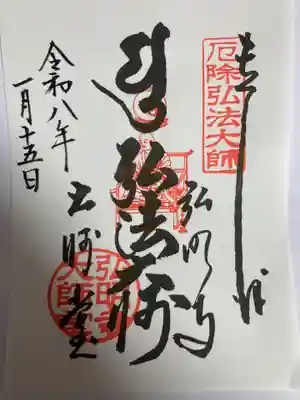 奉拝
厄除弘法大師
弘法大師
弘明寺
大師堂
弘明寺
大師
令和八年
一月十五日